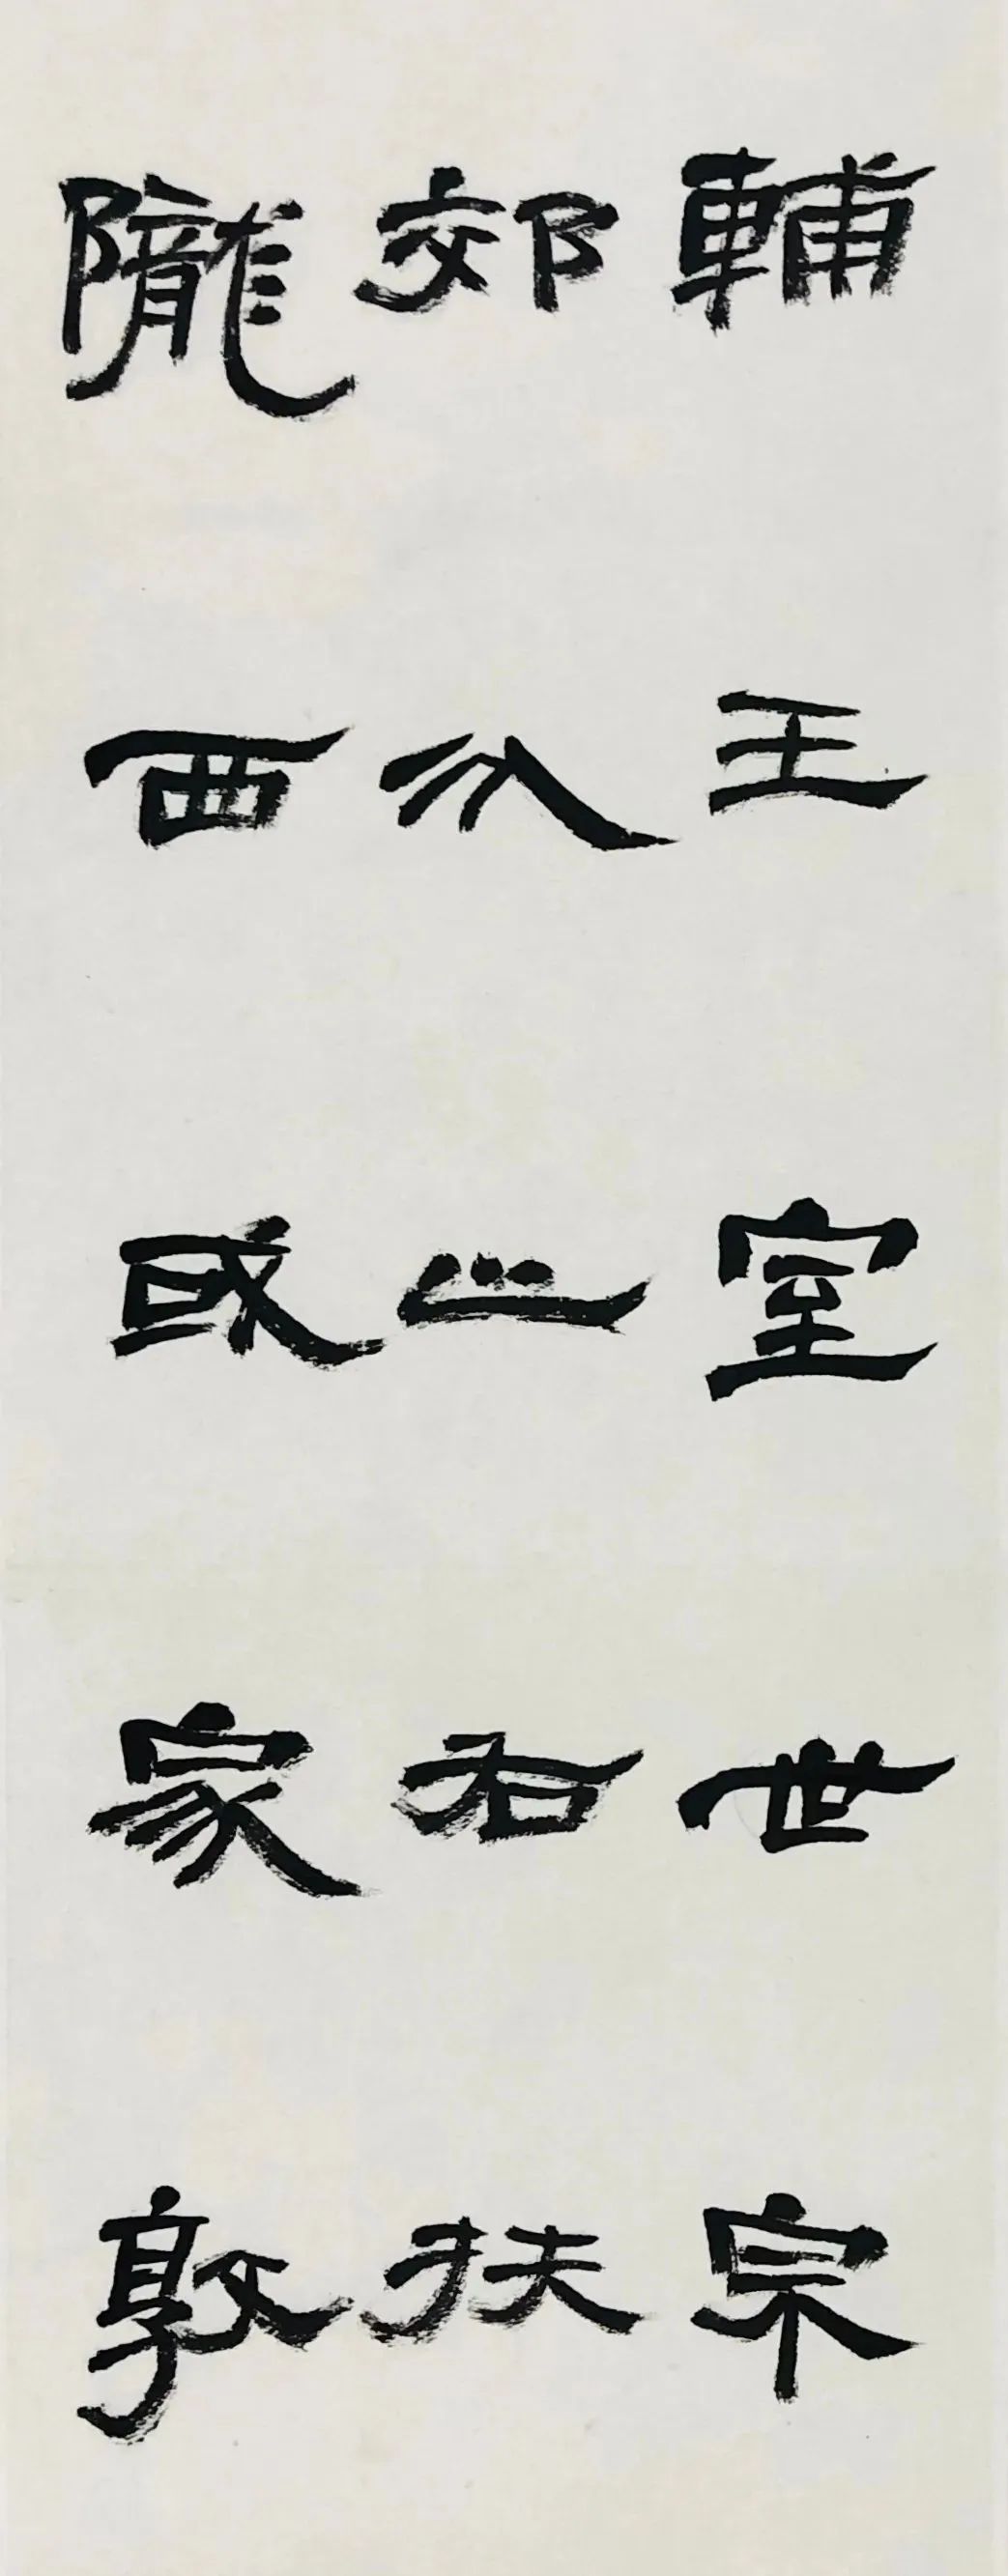 輔王室世宗
郊分止右扶
隴西或家敦